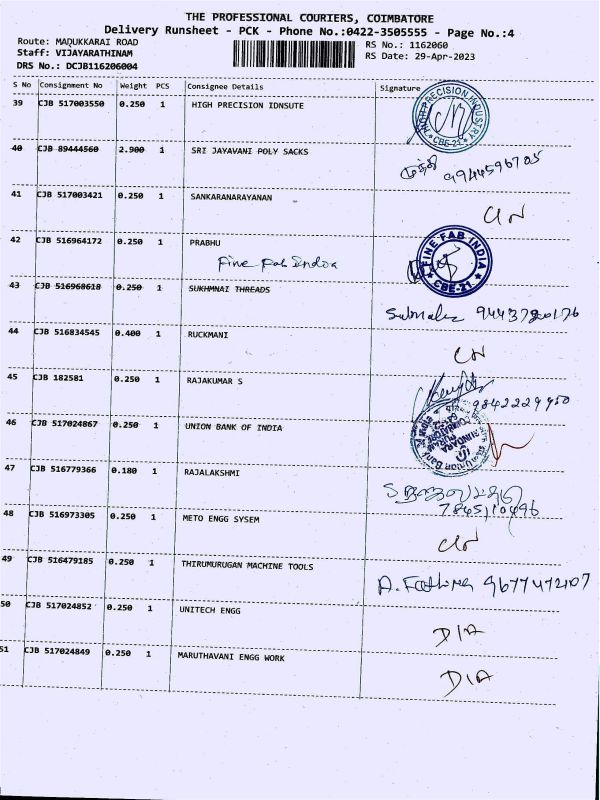 THE PROFESSIONAL COURIERS, COIMBATORE
Delivery Runsheet - PCK - Phone No.:0422-3505555 - Page No.:4
Route: MADUKKARAI ROAD
RS No.: 1162060
Staff: VIJAYARATHINAM
RS Date: 29-Apr-2023
DRS No.: DCJB116206004
S No Consignment No Weight PCS Consignee Details Signature
39 CJB 517003550 0.250 1 HIGH PRECISION IDNSUTE
HIGH PRECISION INDUSTRY
CBE-21
40 CJB 89444560 2.900 1 SRI JAYAVANI POLY SACKS
41 CJB 517003421 0.250 1 SANKARANARAYANAN
42 CJB 516964172 0.250 1 PRABHU
FINE FAB INDIA
CBE-21
Fine Fab India
43 CJB 516968618 0.250 1 SUKHMNAI THREADS
44 CJB 516834545 0.400 1 RUCKMANI
45 CJB 182581 0.250 1 RAJAKUMAR S
9842229950
46 CJB 517024867 0.250 1 UNION BANK OF INDIA
47 CJB 516779366 0.180 1 RAJALAKSHMI
7845110496
48 CJB 516973305 0.250 1 METO ENGG SYSEM
49 CJB 516479185 0.250 1 THIRUMURUGAN MACHINE TOOLS
A. Fathima 9677472107
50 CJB 517024852 0.250 1 UNITECH ENGG
DIA
51 CJB 517024849 0.250 1 MARUTHAVANI ENGG WORK
DIA